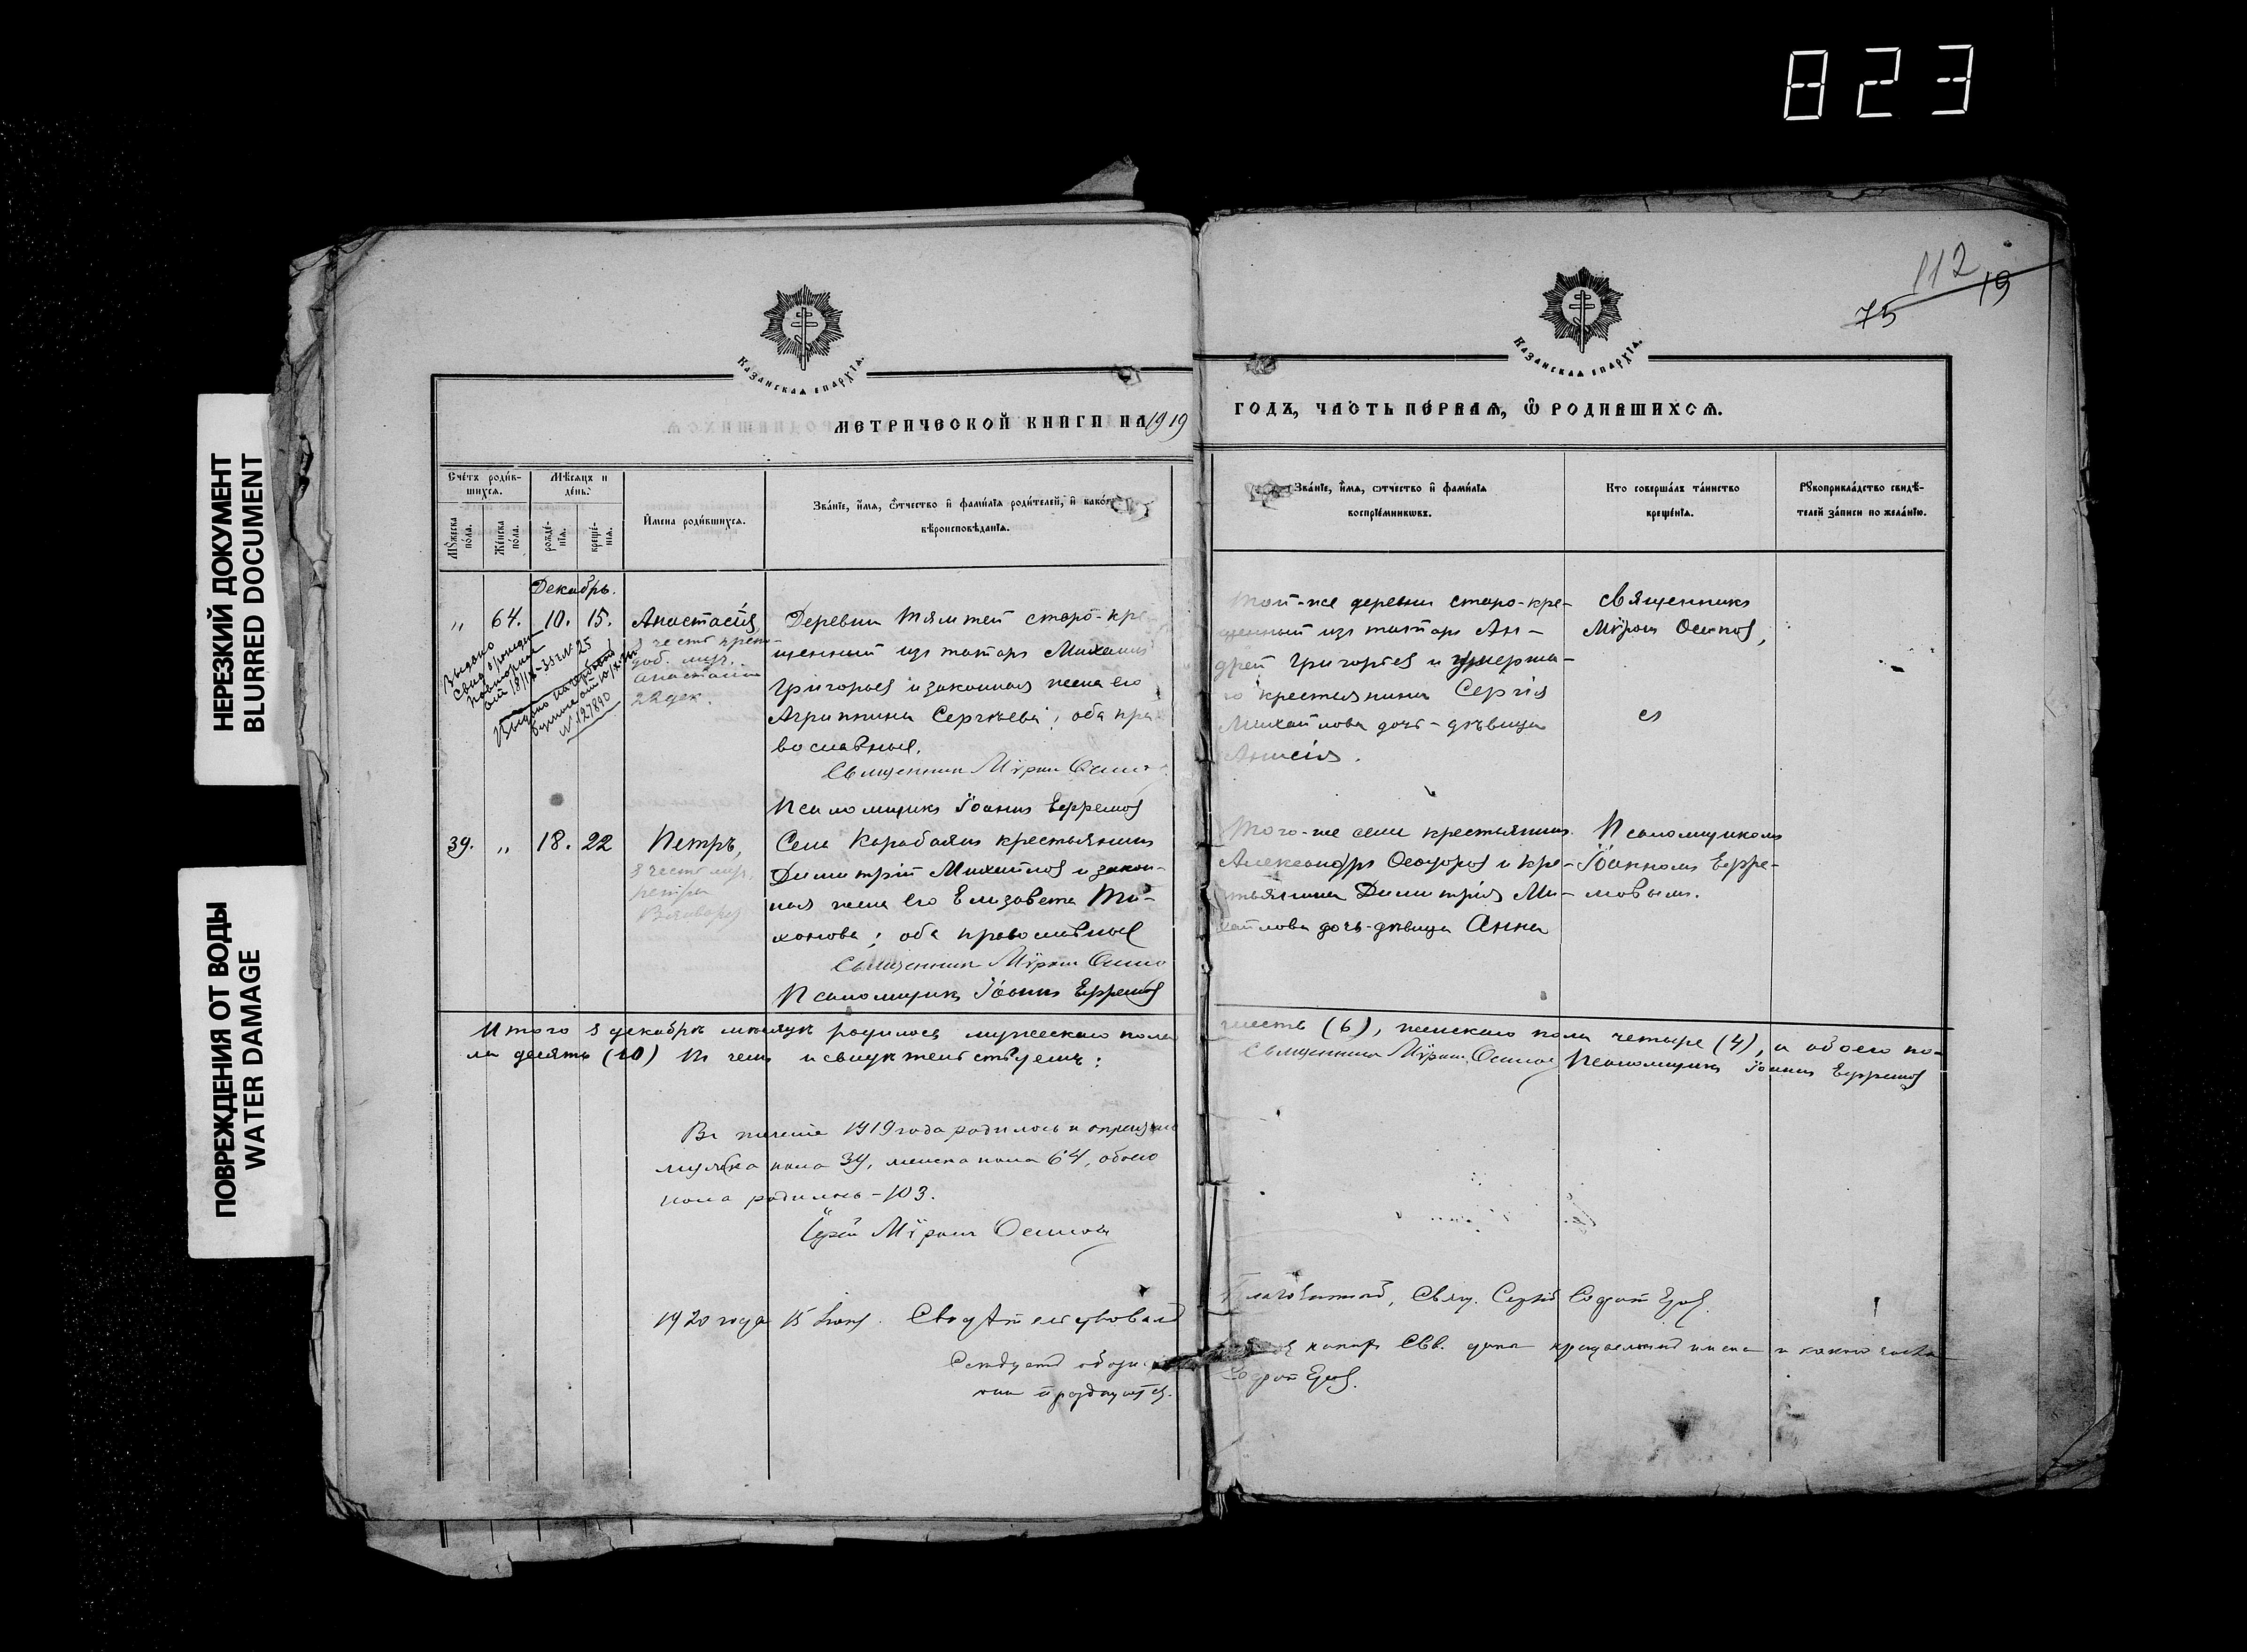 823
НЕРЕЗКИЙ ДОКУМЕНТ
BLURRED DOCUMENT
ПОВРЕЖДЕНИЯ ОТ ВОДЫ
WATER DAMAGE
112
75 19
КАЗАНСКАѦ ЕПАРХІѦ.
КАЗАНСКАѦ ЕПАРХІѦ.
МЕТРИЧЕСКОЙ КНИГИ НА 1919
ГОДЪ, ЧАСТЬ ПЕРВАѦ, Ѿ РОДИВШИХСѦ.
Счетъ родив-
шихся.
Мѣсяцъ и
день.
Мужеска
пола.
Женска
пола.
рожде-
нія.
креще-
нія.
Имена родившихся.
Званіе, имя, отчество и фамилія родителей, и какого
вѣроисповѣданія.
Званіе, имя, отчество и фамилія
воспріемниковъ.
Кто совершалъ таинство
крещенія.
Рукоприкладство свидѣ-
телей записи по желанію.
Декабрь.
„ 64. 10. 15. Анастасія,
22 дек.
Выдано
№ 127890
Деревни Тямтей старо-кре
щенный изъ татаръ Михаилъ
Григорьев и законная жена его
Агриппина Сергѣева; оба пра
вославные.
Священник Мѵрон Осипо
Псаломщикъ Іоаннъ Ефремов
Той-же деревни старо-кре-
щенный изъ татаръ Ан-
дрей Григорьев и умерша-
го крестьянина Сергія
Михайлова дочь-дѣвица
Анисія.
Священникъ
Мѵрон Осипов,
39. „ 18. 22 Петръ,
Села Карабаянъ крестьянинъ
Димитрій Михайлов и закон-
ная жена его Елизавета Ти-
хонова; оба православные
Священник Мѵрон Осипо
Псаломщикъ Іоаннъ Ефремов
Того-же села крестьянинъ
Александръ Ѳеодоров и кре-
стьянина Димитрія Ми-
хайлова дочь-дѣвица Анна
Псаломщикомъ
Іоанномъ Ефре-
мовымъ.
Итого в декабрѣ мѣсяцѣ родилось мужескаго пола
шесть (6), женскаго пола четыре (4), а обоего по-
ла десять (10) въ чемъ и свидѣтельствуемъ:
Священникъ Мѵрон Осипов Псаломщикъ Іоаннъ Ефремов
Въ теченіе 1919 года родилось и окрещено
мужска пола 39, женска пола 64, обоего
пола родилось - 103.
Іерей Мѵрон Осипов
1920 года 15 Свидѣтельствовалъ
Благочинный, Свящ.